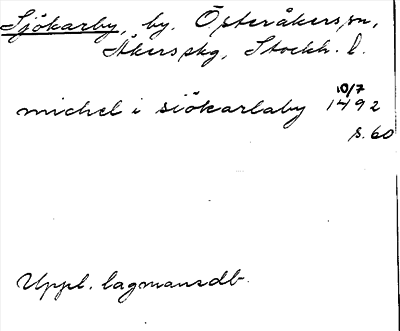 Sjökarby, by. Österåkers sn,
Åkers skg, Stockh. l.
10/7
michel i siökarlaby 1492
s. 60
Uppl. lagmansdb.